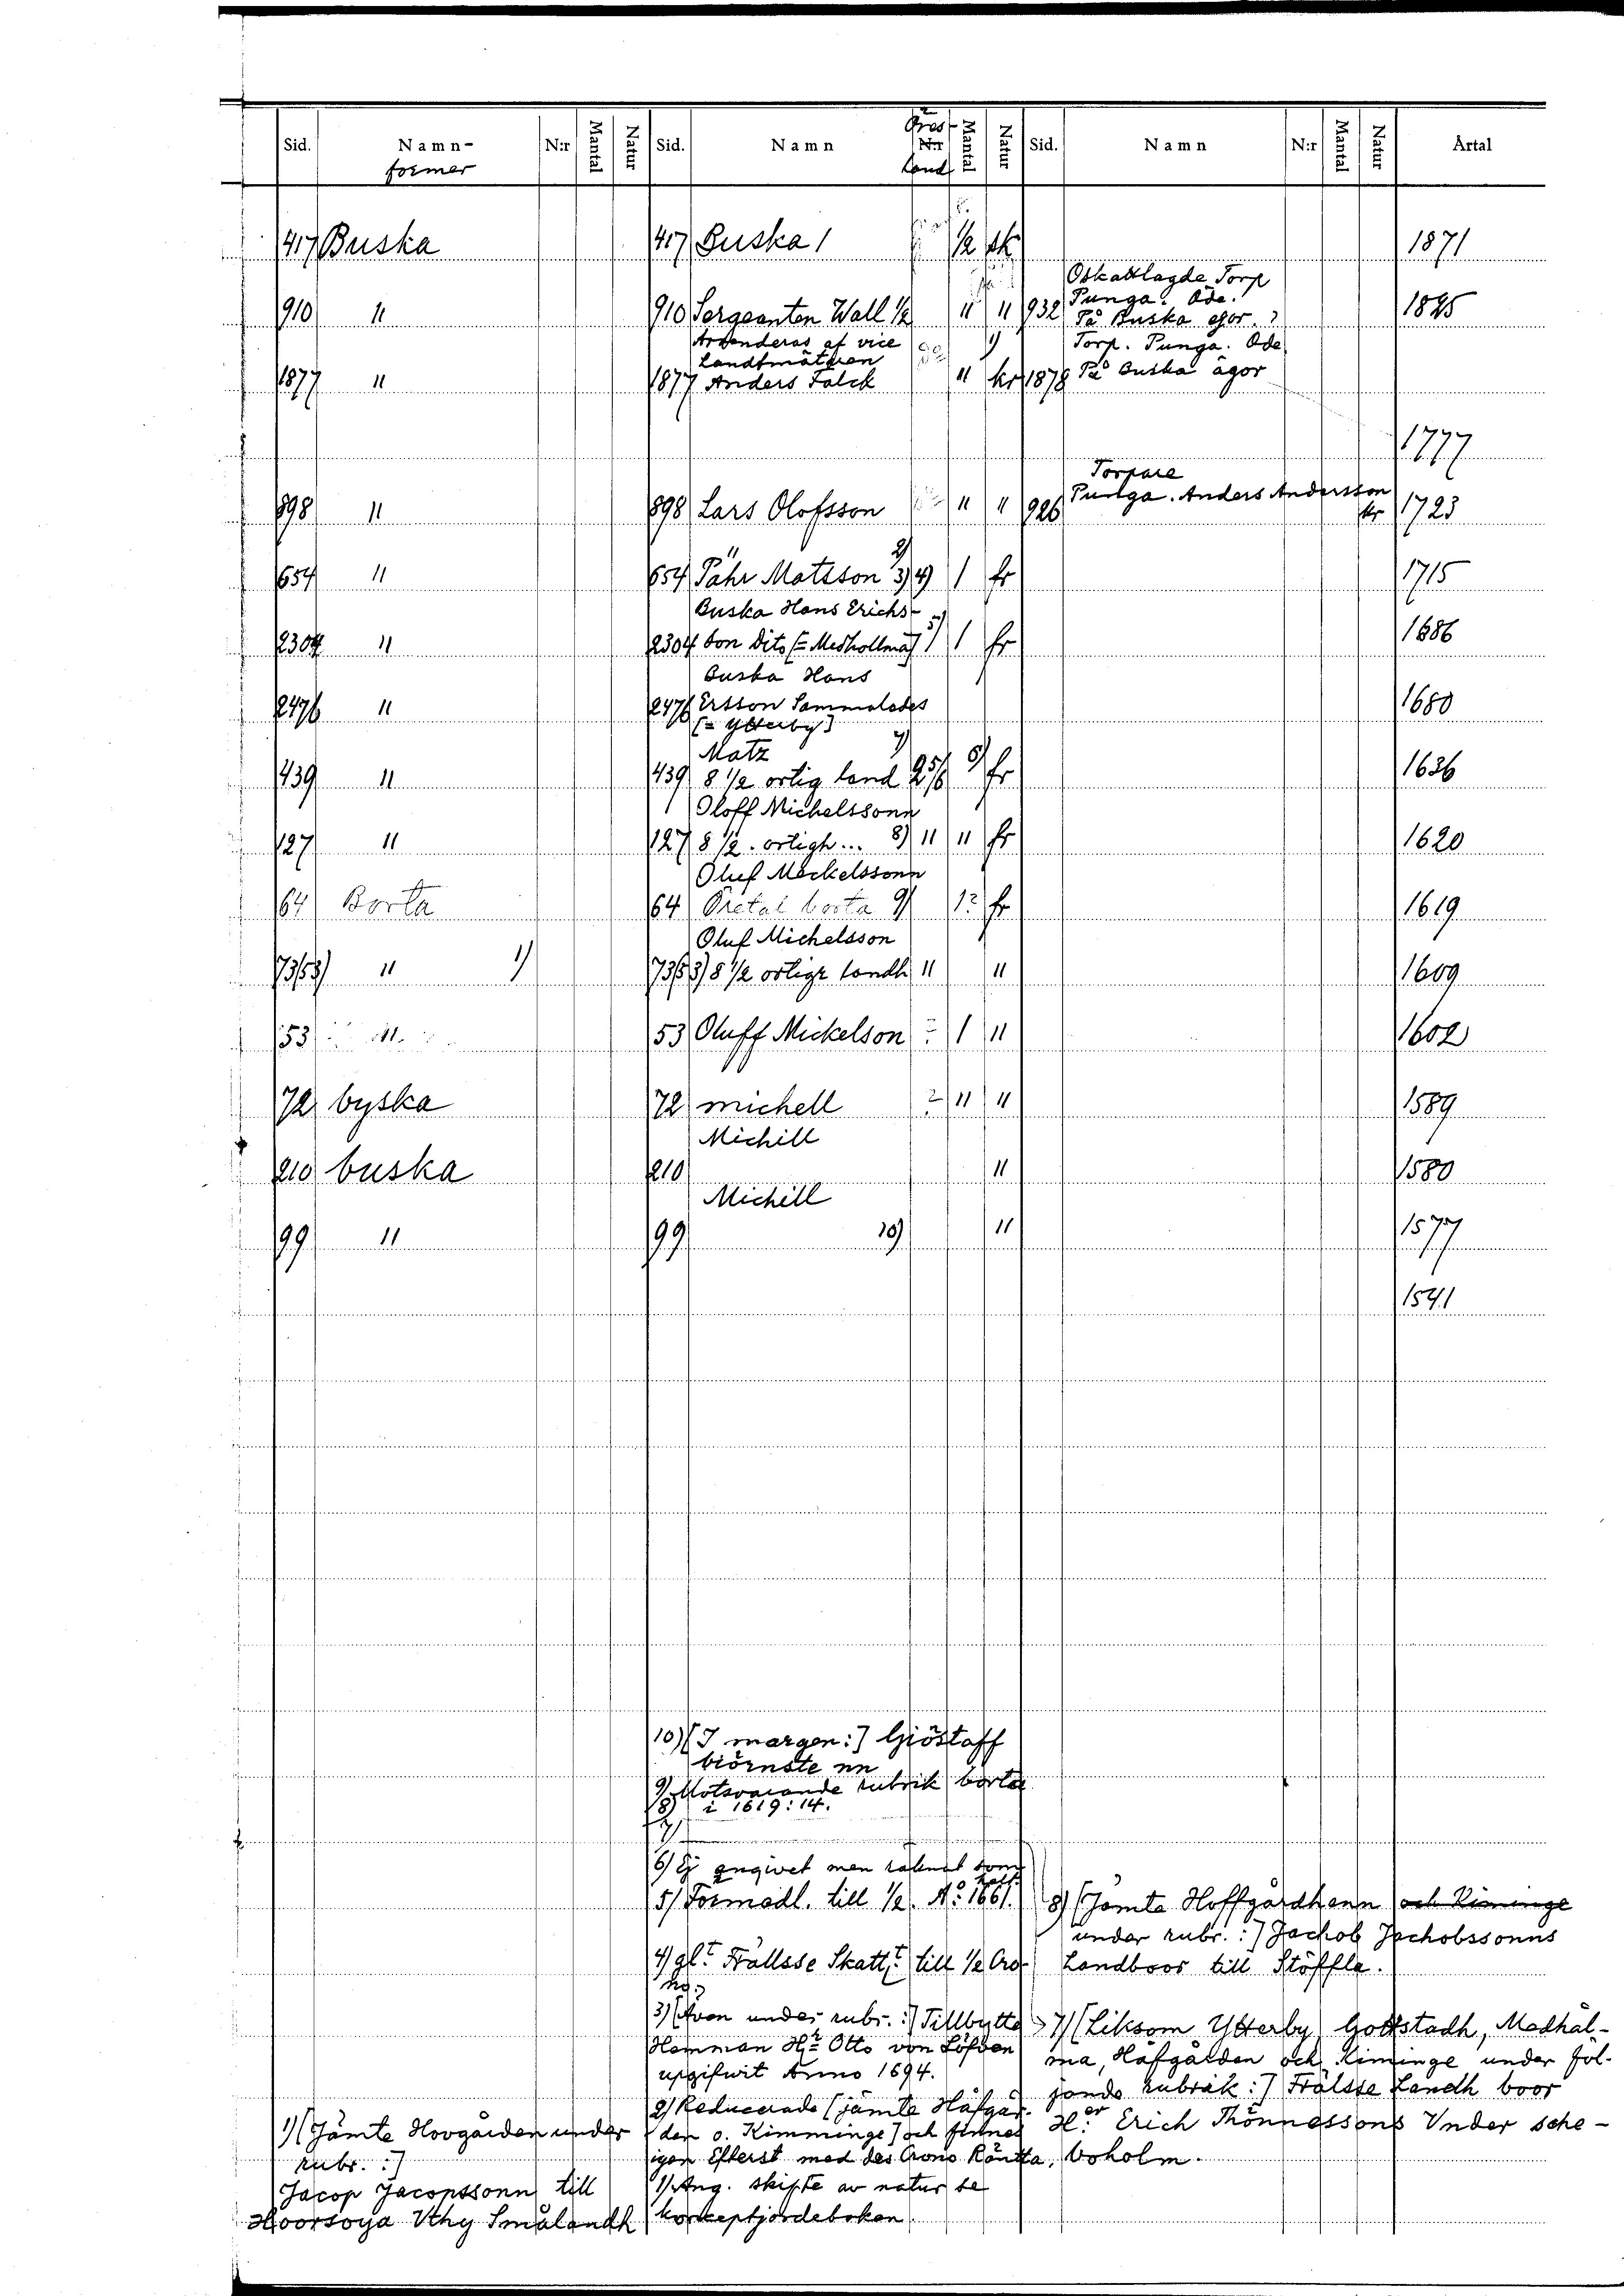 Sid. Namn- N:r Mantal Natur Sid. Namn N:r Mantal Natur Sid. Namn N:r Mantal Natur Årtal
former land
417 Buska 417 Buska 1 1/2 sk 1871
Oskattlagde Torp
Punga. Öde.
910 " 910 Sergeanten Wall 1/2 " " 932 På Buska egor. 1825
Arvenderas af vice Torp. Punga. Öde
Landtmätaren
1877 " 1877 Anders Falck " kr 1878 På Buska ägor
1777
Torpare
898 " 898 Lars Olofsson " " 926 Punga. Anders Andersson kr 1723
654 " 654 Pähr Matsson 3) 4) 1 fr 1715
Buska Hans Erichs-
2304 " 2304 son Dito (= Medhollma) 5) 1 fr 1686
Buska Hans
2476 " 2476 Ersson Sammaledes 1680
(= Ytterby)
Matz 7)
439 " 439 8 1/2 ortig land 6) fr 1636
Oloff Michelssonn
127 " 127 8 1/2 ortigh... 8) " " fr 1620
Oluf Mickelssonn
64 Borta 64 Øretal borta 9) fr 1619
Oluf Michelsson
73(53) " 1) 73(53) 8 1/2 ortigr landh " " 1609
53 " 53 Oluff Mickelson 1 " 1602
72 byska 72 michell " " 1589
Michill
210 buska 210 " 1580
Michill
99 " 99 10) " 1577
1541
10) [I margen:] Giöstaff
biörnste nn
9) Motsvarande rubrik borta
8) i 1619:14.
7)
6) Ej angivet men räknat som
half
5) Förmedl. till 1/2. A:o 1661.
4) gl. Frällsse Skatt: till 1/2 Cro
no:
3) (Även under rubr.:) Tillbytte
Hemman Hr Otto von Löfven
upgifwit Anno 1694.
2) Reducerade (jämte Häfgår-
den o. Kimminge) och finnes
igen Efterst med des Crono Ränta.
1) Ang. skifte av natur se
konceptjordeboken.
8) (Jämte Hoffgårdhenn och Kiminge
under rubr.:) Jachob Jachobssonns
Landboor till Stöffla.
7) (Liksom Ytterby, Gottstadh, Medhål-
ma, Håfgården och Kiminge under föl-
jande rubrik:) Frälsse Landh boor
H:er Erich Thönnessons Vnder sche-
boholm.
1) (Jämte Hovgården under
rubr.:)
Jacop Jacopssonn till
Hoorsoya Vthy Smålandh